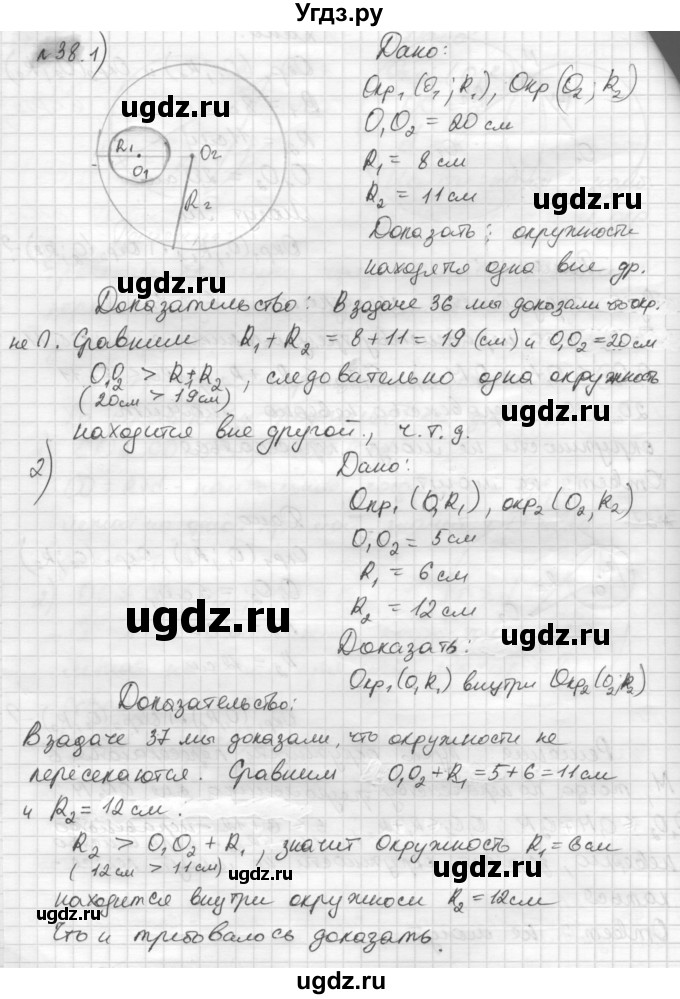 Угдз.ру
№38.1)
Дано:
Окр₁(O₁;R₁), Окр(O₂;R₂)
O₁O₂ = 20 см
R₁ = 8 см
R₂ = 11 см
Доказать: окружности
находятся одна вне др.
R₁
O₁
O₂
R₂
ugdz.ru
ugdz.ru
ugdz.ru
Доказательство: В задаче 36 мы доказали что окр.
не ∩. Сравним R₁+R₂ = 8+11 = 19 (см) и O₁O₂ = 20см
O₁O₂ > R₁+R₂, следовательно одна окружность
(20см > 19см)
находится вне другой., ч.т.д.
ugdz.ru
ugdz.ru
2)
Дано:
Окр₁(O₁R₁), окр₂(O₂,R₂)
O₁O₂ = 5 см
R₁ = 6 см
R₂ = 12 см
Доказать:
Окр₁(O₁R₁) внутри Окр₂(O₂;R₂)
ugdz.ru
ugdz.ru
Доказательство:
В задаче 37 мы доказали, что окружности не
пересекаются. Сравним O₁O₂+R₁=5+6=11см
и R₂=12 см.
ugdz.ru
R₂ > O₁O₂+R₁, значит окружность R₁=6см
(12см > 11см)
ugdz.ru
находится внутри окружноси R₂=12см
Что и требовалось доказать.
ugdz.ru
ugdz.ru